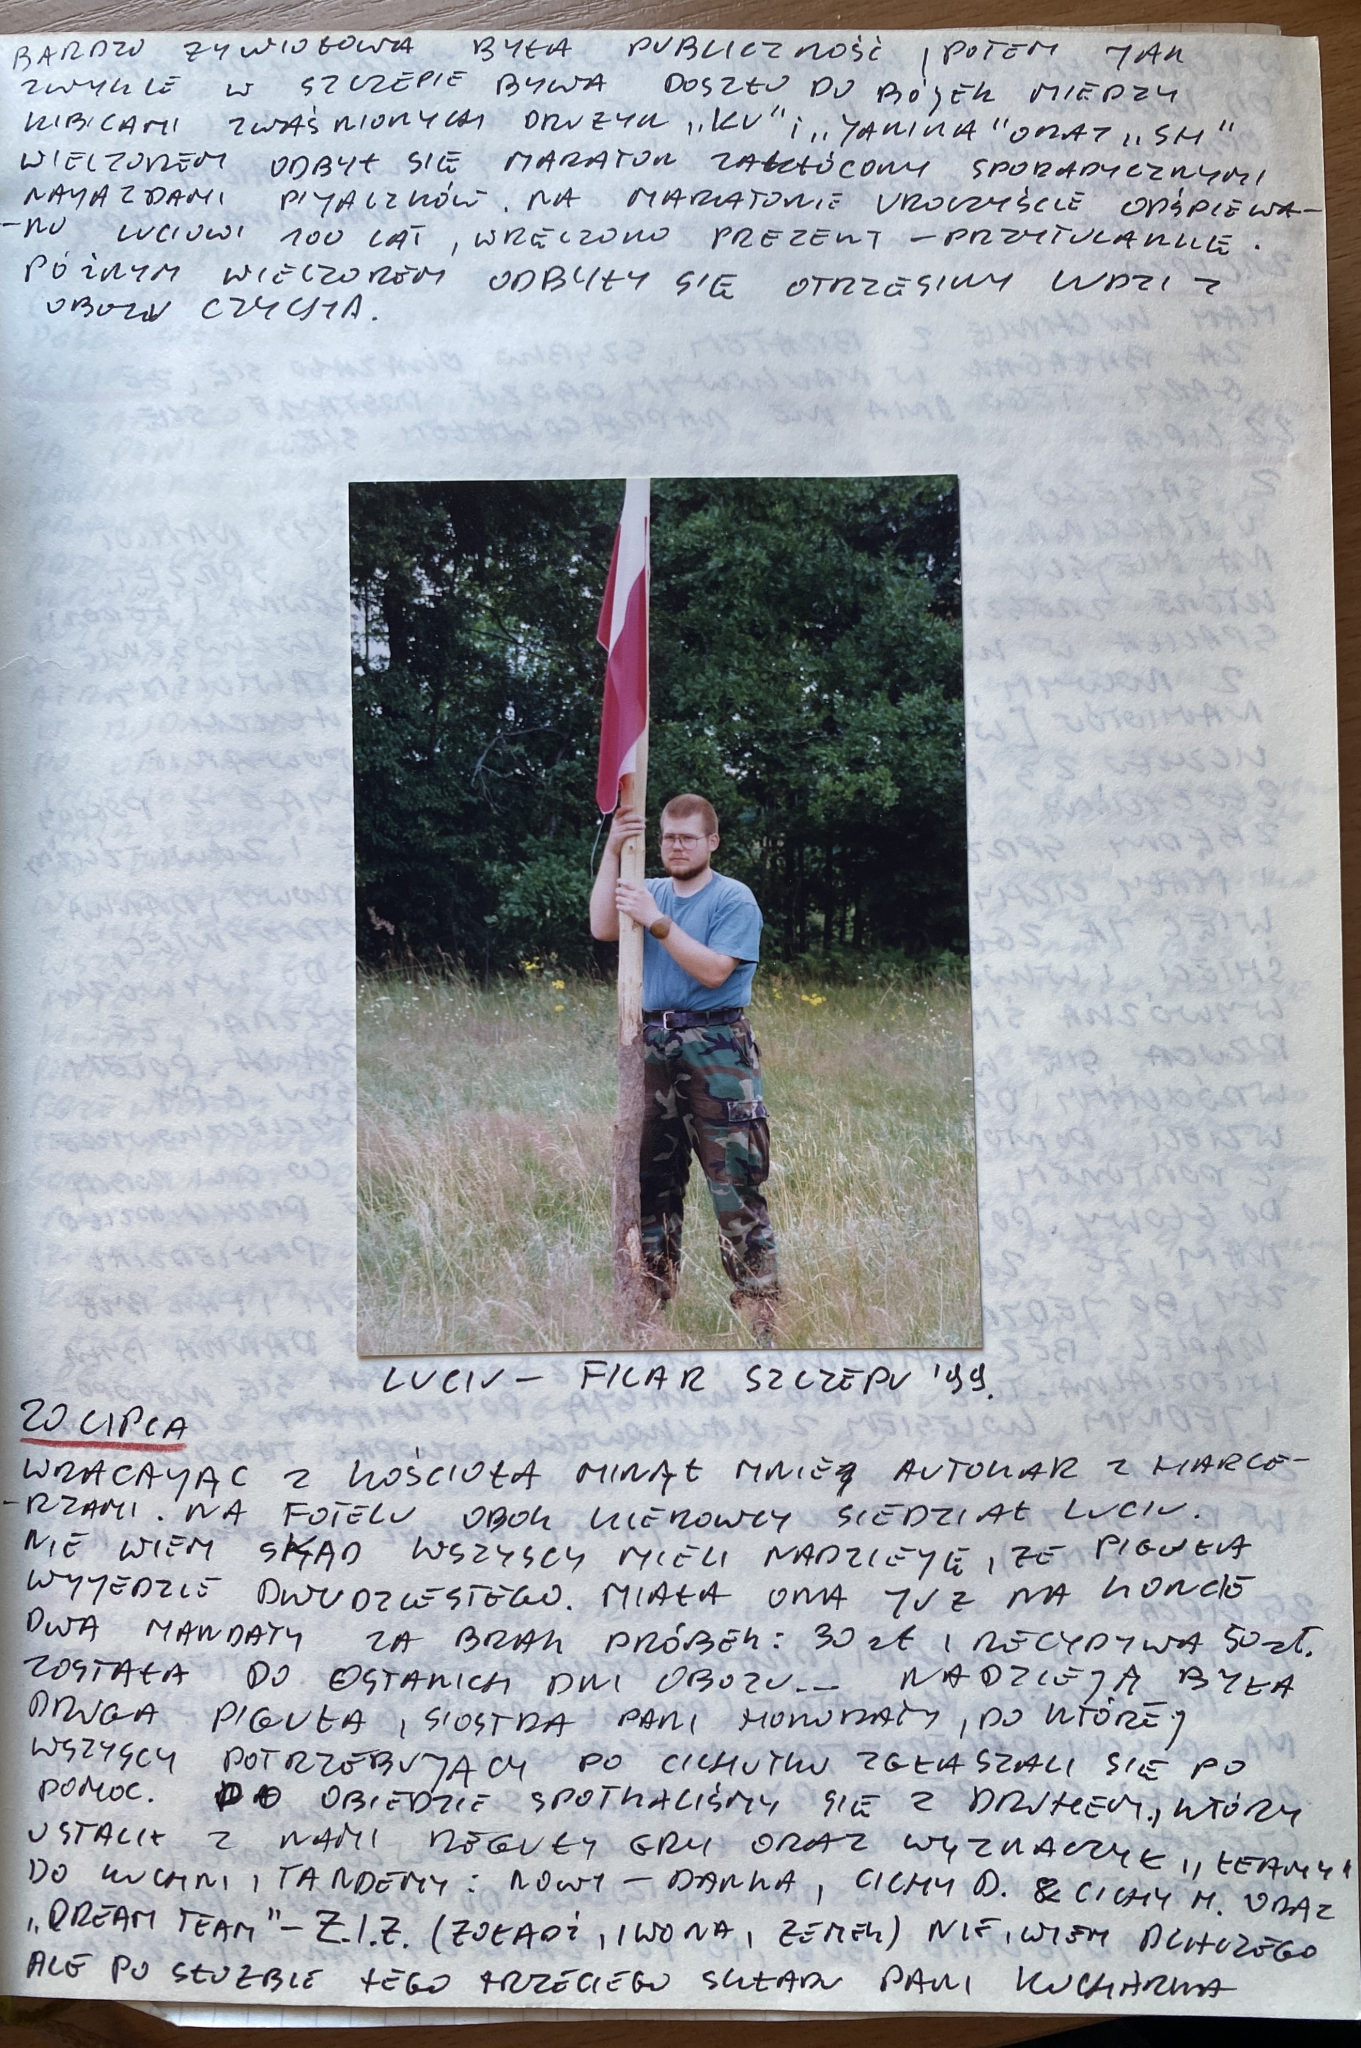 BARDZO ŻYWIOŁOWA BYŁA PUBLICZNOŚĆ, POTEM JAK
ZWYKLE W SZCZEPIE BYWA DOSZŁO DO BÓJEK MIEDZY
KIBICAMI ZWAŚNIONYCH DRUZYN „KU" i „JANINA" ORAZ „SM"
WIECZOREM ODBYŁ SIĘ MARATON ZAKŁÓCONY SPORADYCZNYMI
NAJAZDAMI PIJACZKÓW. NA MARATONIE UROCZYŚCIE ODŚPIEWA-
-NO LUCIOWI 100 LAT, WRĘCZONO PREZENT - PRZYTULANKĘ.
PÓŹNYM WIECZOREM ODBYŁY SIĘ OTRZĘSINY LUDZI Z
OBOZU CZYCHA.
LUCIU - FILAR SZCZEPU '99.
20 LIPCA
WRACAJĄC Z KOŚCIOŁA MINĄŁ MNIE AUTOKAR Z HARCE-
-RZAMI. NA FOTELU OBOK KIEROWCY SIEDZIAŁ LUCIU.
NIE WIEM SKĄD WSZYSCY MIELI NADZIEJĘ, ŻE PIGUŁA
WYJEDZIE DWUDZIESTEGO. MIAŁA ONA JUŻ NA KONCIE
DWA MANDATY ZA BRAK PRÓBEK: 30 zł i RECYDYWA 50 zł.
ZOSTAŁA DO OSTANICH DNI OBOZU... NADZIEJĄ BYŁA
DRUGA PIGUŁA, SIOSTRA PANI HONORATY, DO KTÓREJ
WSZYSCY POTRZEBUJĄCY PO CICHUTKU ZGŁASZALI SIĘ PO
POMOC. PO OBIEDZIE SPOTKALIŚMY SIĘ Z DRUHEM, KTÓRY
USTALIŁ Z NAMI REGUŁY GRY ORAZ WYZNACZYŁ „TEAMY"
DO KUCHNI, TANDEMY: NOWY - DANKA, CICHY D. & CICHY M. ORAZ
„DREAM TEAM" - Z.I.Z. (ŻOŁĄDŹ, IWONA, ZEMEK) NIE WIEM DLACZEGO
ALE PO SŁUŻBIE TEGO TRZECIEGO SKŁADU PANI KUCHARKA